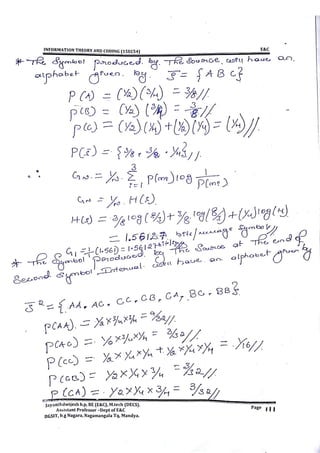 INFORMATION THEORY AND CODING (11EC54) E&C
* The Symbol produced by The Source, will have an
alphabet given by S = { A B C }
P(A) = (1/2)(3/4) = 3/8//
P(B) = (1/2)(3/4) = 3/8//
P(C) = (1/2)(1/4) + (1/2)(1/4) = (1/4)//
P(s) = {3/8, 3/8, 1/4}//
GN = 1/N Σ P(mi) log 1/P(mi)
3
i=1
GN = 1/N H(s)
H(s) = 3/8 log (8/3) + 3/8 log (8/3) + (1/4) log (4)
= 1.5612 bits/message Symbol//
* The Symbol produced by The Source at The end of
Second Symbol Interval will have an alphabet given by
S2 = { AA, AC, CC, CB, CA, BC, BB }
P(AA) = 1/2 x 3/4 x 3/4 = 9/32//
P(AC) = 1/2 x 3/4 x 1/4 = 3/32//
P(CC) = 1/2 x 1/4 x 1/4 + 1/2 x 1/4 x 1/4 = 1/16//
P(CB) = 1/2 x 1/4 x 3/4 = 3/32//
P(CA) = 1/2 x 1/4 x 3/4 = 3/32//
BE (E&C), M.tech (DECS).
Assistant Professor -Dept of E&C Page
BGSIT, b.g Nagara, Nagamangala Tq, Mandya.